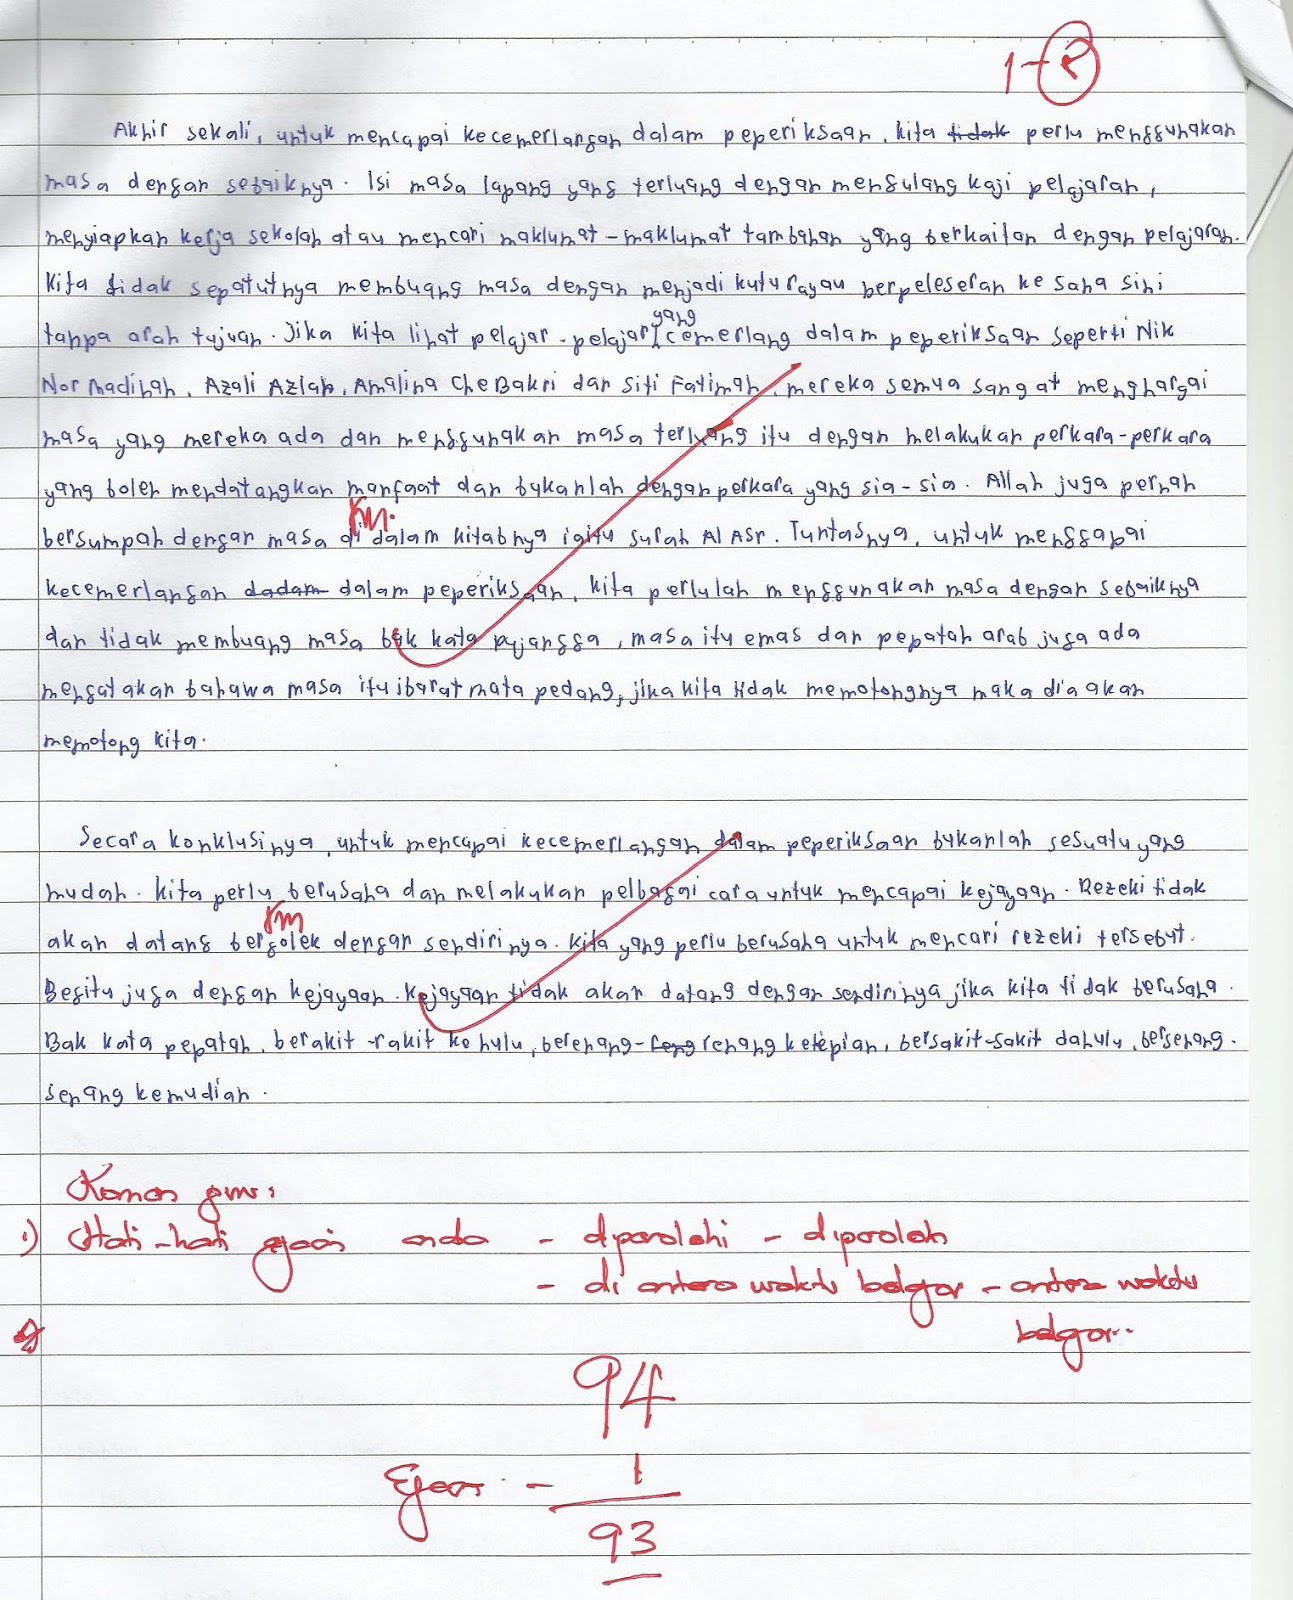 1-2
Akhir sekali, untuk mencapai kecemerlangan dalam peperiksaan, kita tidak perlu menggunakan
masa dengan sebaiknya. Isi masa lapang yang terluang dengan mengulang kaji pelajaran,
menyiapkan kerja sekolah atau mencari maklumat-maklumat tambahan yang berkaitan dengan pelajaran.
Kita tidak sepatutnya membuang masa dengan menjadi kutu rayau berpeleseran ke sana sini
tanpa arah tujuan. Jika kita lihat pelajar-pelajar yang cemerlang dalam peperiksaan seperti Nik
Nor Madihah, Azali Azlan, Amalina Che Bakri dan Siti Fatimah, mereka semua sangat menghargai
masa yang mereka ada dan menggunakan masa terluang itu dengan melakukan perkara-perkara
yang boleh mendatangkan manfaat dan bukanlah dengan perkara yang sia-sia. Allah juga pernah
KM.
bersumpah dengan masa di dalam kitabnya iaitu surah Al Asr. Tuntasnya, untuk menggapai
kecemerlangan dadam dalam peperiksaan, kita perlulah menggunakan masa dengan sebaiknya
dan tidak membuang masa bak kata pujangga, masa itu emas dan pepatah arab juga ada
mengatakan bahawa masa itu ibarat mata pedang, jika kita tidak memotongnya maka dia akan
memotong kita.
Secara konklusinya, untuk mencapai kecemerlangan dalam peperiksaan bukanlah sesuatu yang
mudah. Kita perlu berusaha dan melakukan pelbagai cara untuk mencapai kejayaan. Rezeki tidak
KM
akan datang bergolek dengan sendirinya. Kita yang perlu berusaha untuk mencari rezeki tersebut.
Begitu juga dengan kejayaan. Kejayaan tidak akan datang dengan sendirinya jika kita tidak berusaha.
Bak kata pepatah, berakit-rakit ke hulu, berenang-renang ketepian, bersakit-sakit dahulu, bersenang-
senang kemudian.
Komen guru:
1) Hati-hati ejaan anda - diperolehi - diperoleh
- di antara waktu belajar - antara waktu
belajar..
94
Ejaan - 1
93